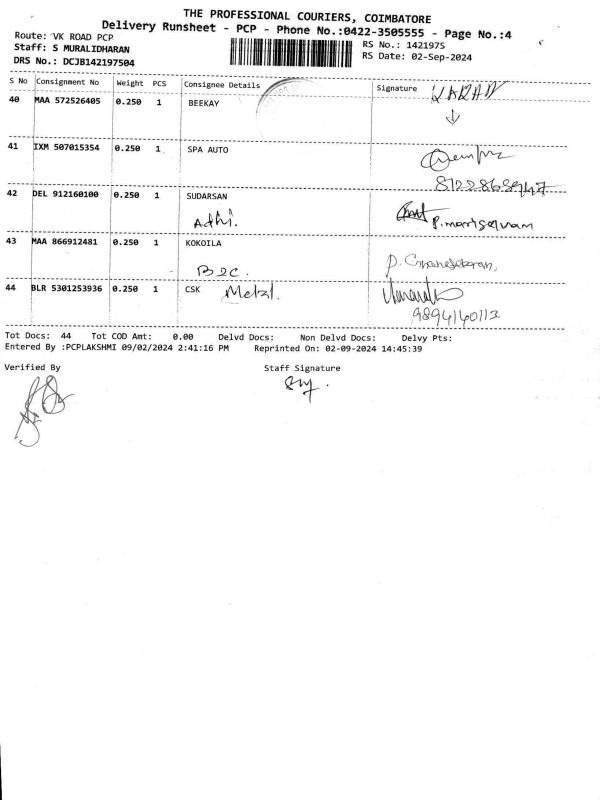 THE PROFESSIONAL COURIERS, COIMBATORE
Delivery Runsheet - PCP - Phone No.:0422-3505555 - Page No.:4
Route: VK ROAD PCP RS No.: 1421975
Staff: S MURALIDHARAN RS Date: 02-Sep-2024
DRS No.: DCJB142197504
S No Consignment No Weight PCS Consignee Details Signature
40 MAA 572526405 0.250 1 BEEKAY
41 IXM 507015354 0.250 1 SPA AUTO
42 DEL 912160100 0.250 1 SUDARSAN
Adhi. P.mariselvam
43 MAA 866912481 0.250 1 KOKOILA
44 BLR 5301253936 0.250 1 CSK Metal.
9894140113
Tot Docs: 44 Tot COD Amt: 0.00 Delvd Docs: Non Delvd Docs: Delvy Pts:
Entered By :PCPLAKSHMI 09/02/2024 2:41:16 PM Reprinted On: 02-09-2024 14:45:39
Verified By Staff Signature